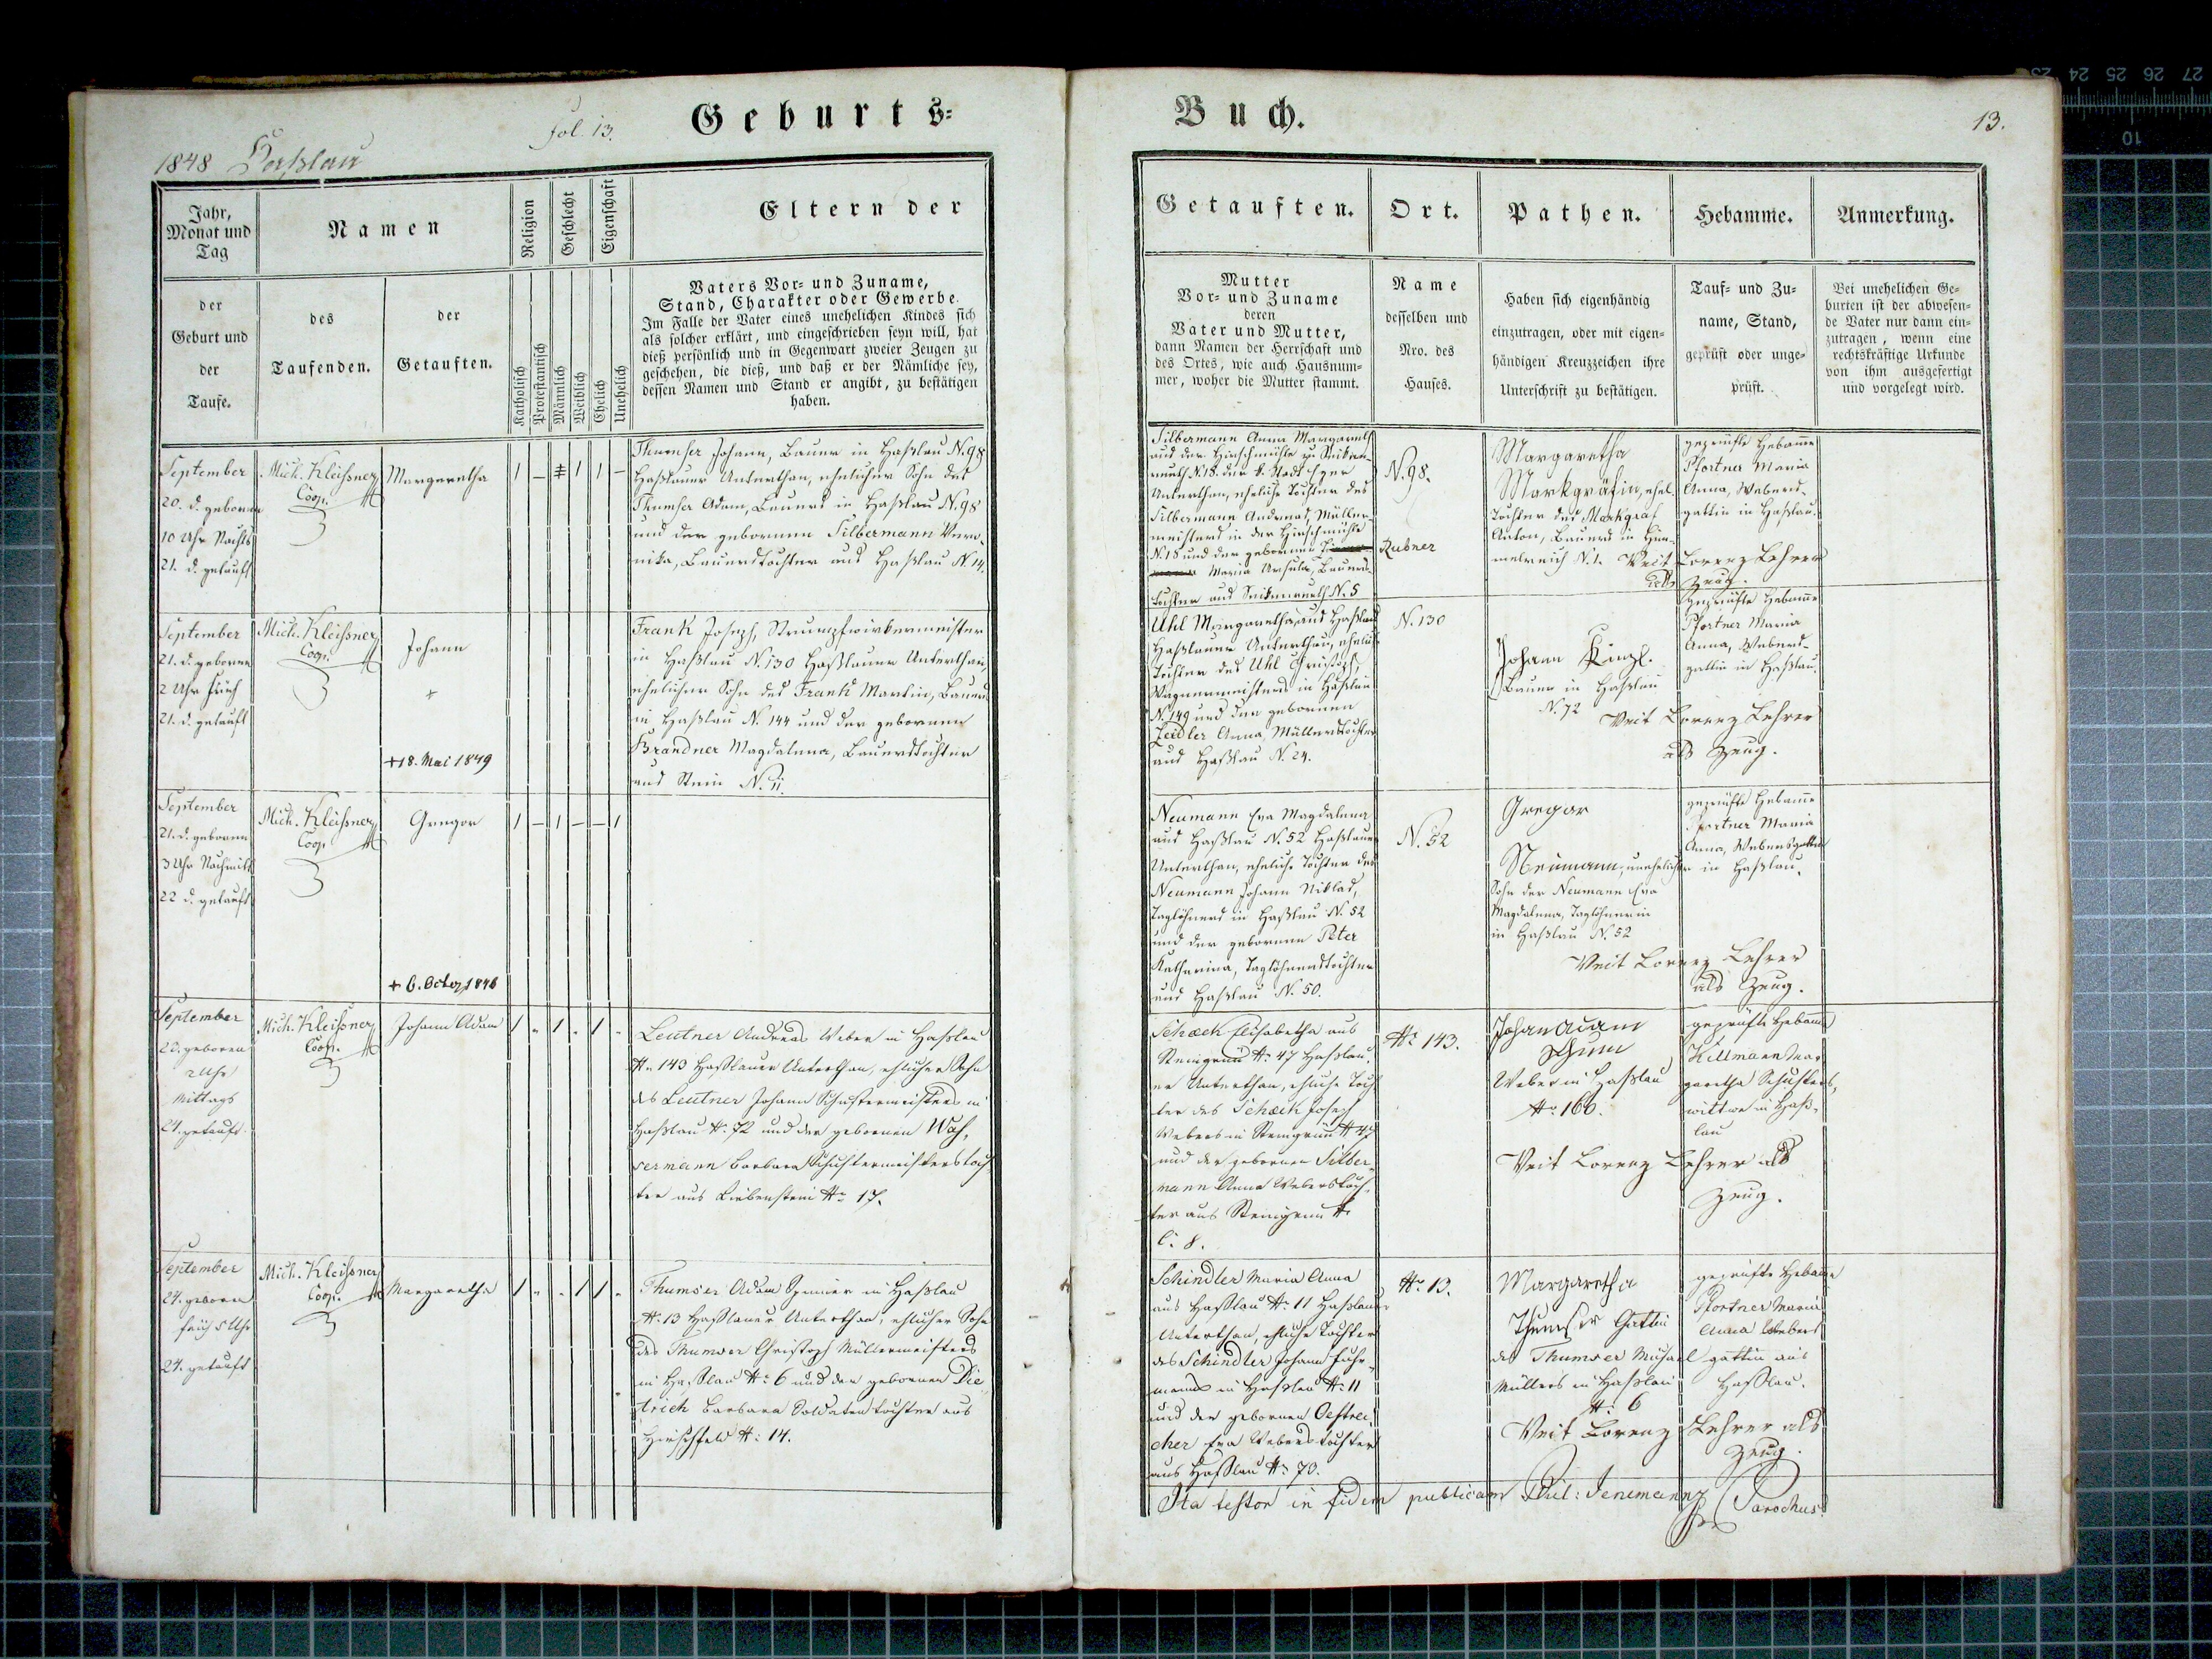 Geburts-
Buch.
fol. 13.
13.
1848 Haßlau
Jahr,
Monat und
Tag
der
Geburt und
der
Taufe.
Namen
des
Taufenden.
der
Getauften.
Religion
Geschlecht
Eigenschaft
Katholisch
Protestantisch
Männlich
Weiblich
Ehelich
Unehelich
Eltern der
Vaters Vor- und Zuname,
Stand, Charakter oder Gewerbe.
Im Falle der Vater eines unehelichen Kindes sich
als solcher erklärt, und eingeschrieben seyn will, hat
dieß persönlich und in Gegenwart zweier Zeugen zu
geschehen, die dieß, und daß er der Nämliche sey,
dessen Namen und Stand er angibt, zu bestätigen
haben.
Getauften.
Mutter
Vor- und Zuname
deren
Vater und Mutter,
dann Namen der Herrschaft und
des Ortes, wie auch Hausnum-
mer, woher die Mutter stammt.
Ort.
Name
desselben und
Nro. des
Hauses.
Pathen.
Haben sich eigenhändig
einzutragen, oder mit eigen-
händigen Kreuzzeichen ihre
Unterschrift zu bestätigen.
Hebamme.
Tauf- und Zu-
name, Stand,
geprüft oder unge-
prüft.
Anmerkung.
Bei unehelichen Ge-
burten ist der abwesen-
de Vater nur dann ein-
zutragen, wenn eine
rechtskräftige Urkunde
von ihm ausgefertigt
und vorgelegt wird.
September
20. d. geboren
10 Uhr Nachts
21. d. getauft
Mich. Kleißner
Coop.
Margaretha
1 – 1 1 –
Thumser Johann, Bauer in Haßlau N. 98
Haßlauer Unterthan, ehelicher Sohn des
Thumser Adam, Bauers in Haßlau N. 98
und der gebornen Silbermann Vero-
nika, Bauerstochter aus Haßlau N. 14.
Silbermann Anna Margareth
aus der Hirschmühle zu
N. 18. der k. Stadt Eger
Unterthan, eheliche Tochter des
Silbermann Andreas, Müller-
meisters in der Hirschmühle
N. 18 und der gebornen
Rubner
Maria Ursula, Bauers-
tochter aus N. 5
N. 98.
Margaretha
Markgräfin, ehel.
Tochter des Markgraf
Anton, Bauers in Him-
melreich N. 1. Veit Lorenz Lehrer
als Zeug.
geprüfte Hebamme
Pfortner Maria
Anna, Webers-
gattin in Haßlau.
September
21. d. geboren
2 Uhr früh
21. d. getauft
Mich. Kleißner
Coop.
Johann
+
+ 18. Mai 1849
Frank Joseph, Strumpfwirkermeister
in Haßlau N. 130 Haßlauer Unterthan,
ehelicher Sohn des Frank Martin, Bauers
in Haßlau N. 144 und der gebornen
Brandner Magdalena, Bauerstochter
aus Stein N. 11.
Uhl Margaretha, aus Haßlau
Haßlauer Unterthan, eheliche
Tochter des Uhl Christoph,
Wagnermeisters in Haßlau
N. 149 und der gebornen
Zeidler Anna, Müllerstochter
aus Haßlau N. 24.
N. 130
Johann
Bauer in Haßlau
N. 72
Veit Lorenz Lehrer
als Zeug.
Geprüfte Hebamme
Pfortner Maria
Anna, Webers-
gattin in Haßlau.
September
21. d. geboren
3 Uhr Nachmitt
22 d. getauft
Mich. Kleißner
Coop.
Gregor
1 – 1 – – 1
Neumann Eva Magdalena
aus Haßlau N. 52 Haßlauer
Unterthan, eheliche Tochter des
Neumann Johann Niklas,
Taglöhners in Haßlau N. 52
und der gebornen Peter
Katharina, Taglöhnerstochter
aus Haßlau N. 50.
N. 52
Gregor
Neumann, unehelicher
Sohn der Neumann Eva
Magdalena, Taglöhnerin
in Haßlau N. 52
Veit Lorenz Lehrer
als Zeug.
geprüfte Hebamme
Pfortner Maria
Anna, Webersgattin
in Haßlau.
+ 6. Octob. 1848
September
geboren
2 Uhr
Mittags
24. getauft.
Mich. Kleißner
Coop.
Johann Adam
1 „ 1 „ 1 „
Leutner Andreas Weber in Haßlau
N. 143 Haßlauer Unterthan, ehlicher Sohn
des Leutner Johann Schustermeisters in
Haßlau N. 72 und der gebornen Was-
sermann Barbara Schustermeisterstoch
ter aus Liebenstein N. 17.
Schæck Elisabetha aus
Steingrün N. 47 Haßlau-
er Unterthan, ehliche Toch
ter des Schæck Joseph
Webers in Steingrün N. 47
und der gebornen Silber-
mann Anna Weberstoch-
ter aus Steingrün N.
C. 8.
N. 143.
Johan Adam
Thum
Weber in Haßlau
N. 166.
Veit Lorenz Lehrer als
Zeug.
geprüfte Hebamme
Killmann Mar
garetha Schusters-
wittwe in Haß-
lau
September
24. geboren
früh 5 Uhr
24. getauft
Mich. Kleißner
Coop.
Margaretha
1 „ „ 1 1 „
Thumser Adam Spinner in Haßlau
N. 13 Haßlauer Unterthan, ehlicher Sohn
des Thumser Christoph Müllermeisters
in Haßlau N. 6 und der gebornen Die
trich Barbara Soldatentochter aus
Hirschfeld N. 14.
Schindler Maria Anna
aus Haßlau N. 11 Haßlauer
Unterthan, ehliche Tochter
des Schindler Johann Fuhr-
manns in Haßlau N. 11
und der gebornen Oestrei-
cher Eva Weberstochter
aus Haßlau N. 70.
N. 13.
Margaretha
Thumser Gattin
des Thumser Michael
Müllers in Haßlau
N. 6
Veit Lorenz Lehrer als
Zeug.
geprüfte Hebamme
Pfortner Maria
Anna Webers
gattin aus
Haßlau.
Ita testor in fidem publicam Phil: Jenemann Parochus.